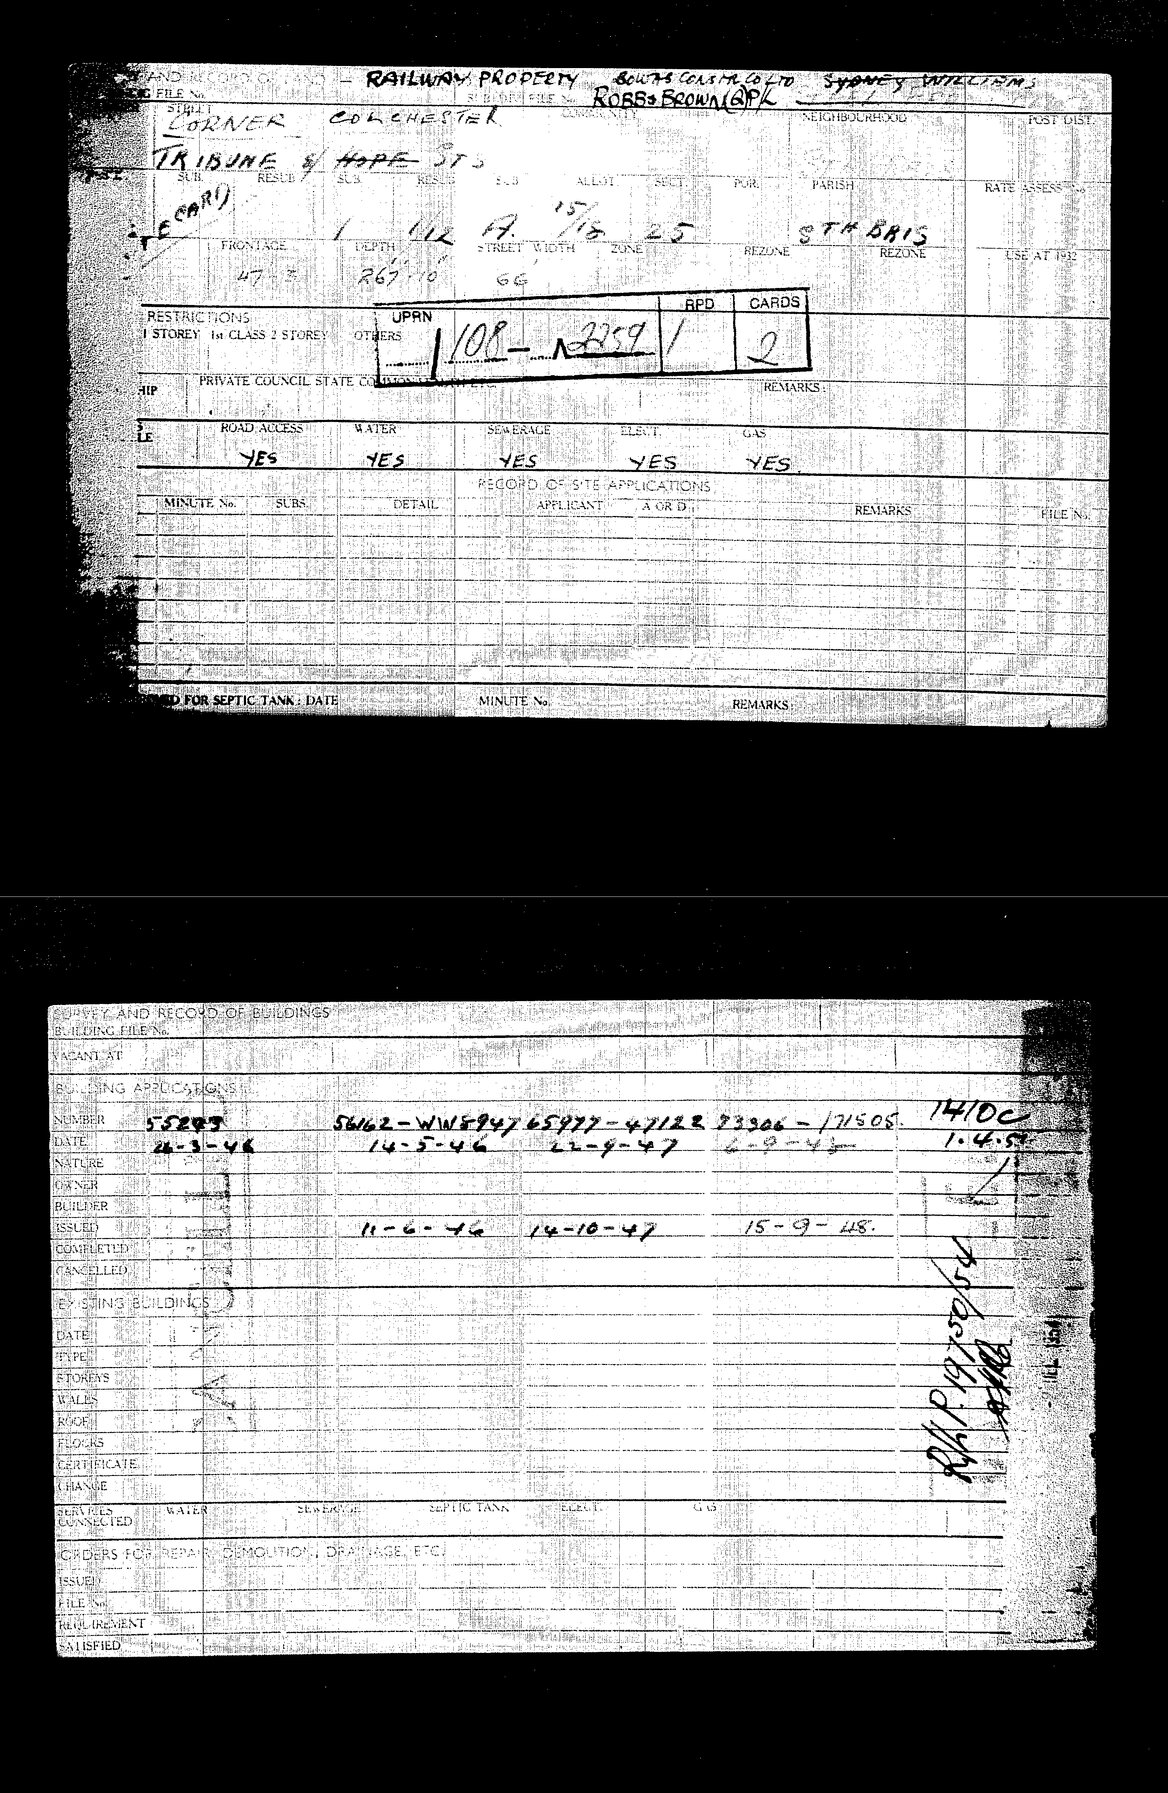 AND RECORD OF LAND - RAILWAY PROPERTY BOWAS CONSTR. CO LTD SYDNEY WILLIAMS
FILE No. SUB DIV. FILE No. ROBB & BROWN (Q) P/L
STREET COMMUNITY NEIGHBOURHOOD POST DIST.
CORNER COLCHESTER
TRIBUNE & HOPE STS
SUB. RESUB. SUB. RESUB. SUB. ALLOT. SECT. POR. PARISH RATE ASSESS No.
E CARD
1 1/12 A. 15/18 25 STH BRIS
FRONTAGE DEPTH STREET WIDTH ZONE REZONE REZONE USE AT 1932
267'-10" 66'
RESTRICTIONS
1 STOREY 1st CLASS 2 STOREY OTHERS
UPRN RPD CARDS
108 - 2259 1 2
HIP PRIVATE COUNCIL STATE REMARKS:
ROAD ACCESS WATER SEWERAGE ELECT. GAS
YES YES YES YES YES
RECORD OF SITE APPLICATIONS
MINUTE No. SUBS. DETAIL APPLICANT A OR D REMARKS FILE No.
FOR SEPTIC TANK: DATE MINUTE No. REMARKS:
SURVEY AND RECORD OF BUILDINGS
BUILDING FILE No.
VACANT AT
BUILDING APPLICATIONS
NUMBER 56162-WW5947 65977-47122 73306-171505. 1410C
DATE 4-3-46 14-5-46 22-9-47 6-9-48
NATURE
OWNER
BUILDER
ISSUED 11-6-46 14-10-47 15-9-48.
COMPLETED
CANCELLED
R/L P. 19750/54
EXISTING BUILDINGS
DATE
TYPE
STOREYS
WALLS
ROOF
FLOORS
CERTIFICATE
CHANGE
SERVICES CONNECTED WATER SEWERAGE SEPTIC TANK ELECT. GAS
ORDERS FOR REPAIR, DEMOLITION, DRAINAGE, ETC.
ISSUED
FILE No.
REQUIREMENT
SATISFIED